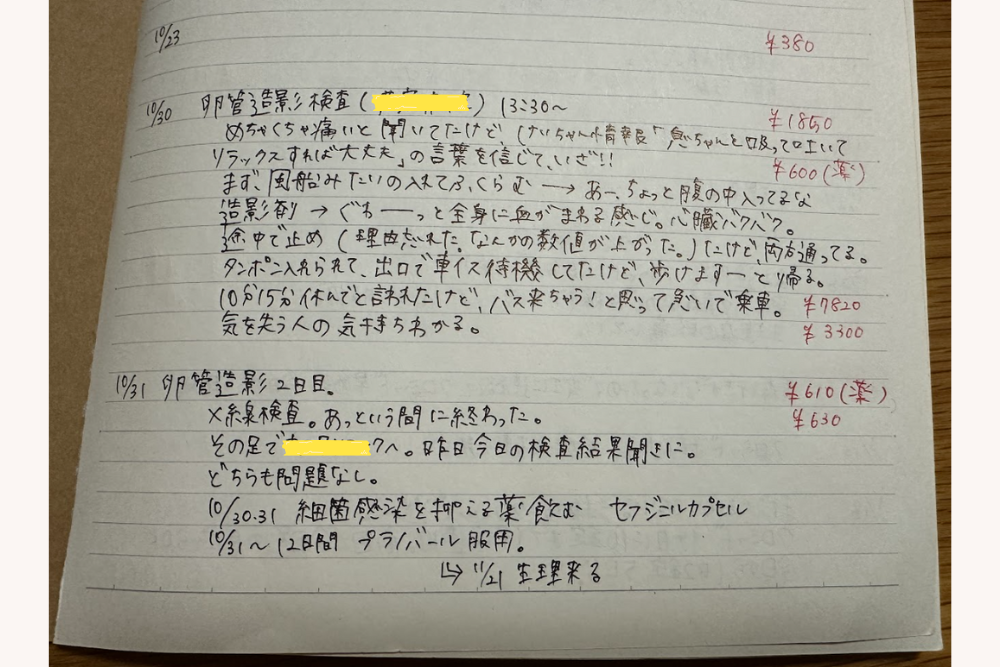 10/23 ¥380
10/30 卵管造影検査( ) 13:30〜 ¥1850
めちゃくちゃ痛いと聞いてたけど、けいちゃん情報「息ちゃんと吸って吐いて
リラックスすれば大丈夫」の言葉を信じて、いざ!! ¥600(薬)
まず、風船みたいの入れてふくらむ → あー、ちょっと腹の中入ってるな
造影剤 → ぐわーーっと全身に血がまわる感じ。心臓バクバク。
途中で止め(理由忘れた。なんかの数値が上がった。)たけど、両方通ってる。
タンポン入れられて、出口で車イス待機してたけど、歩けますーと帰る。
10分15分休んでと言われたけど、バス来ちゃう!と思って急いで乗車。 ¥7820
気を失う人の気持ちわかる。 ¥3300
10/31 卵管造影2日目。 ¥610(薬)
X線検査。あっという間に終わった。 ¥630
その足で へ。昨日今日の検査結果聞きに。
どちらも問題なし。
10/30.31 細菌感染を抑える薬飲む セフジニルカプセル
10/31〜12日間 プラノバール服用。
↳ 11/21 生理来る